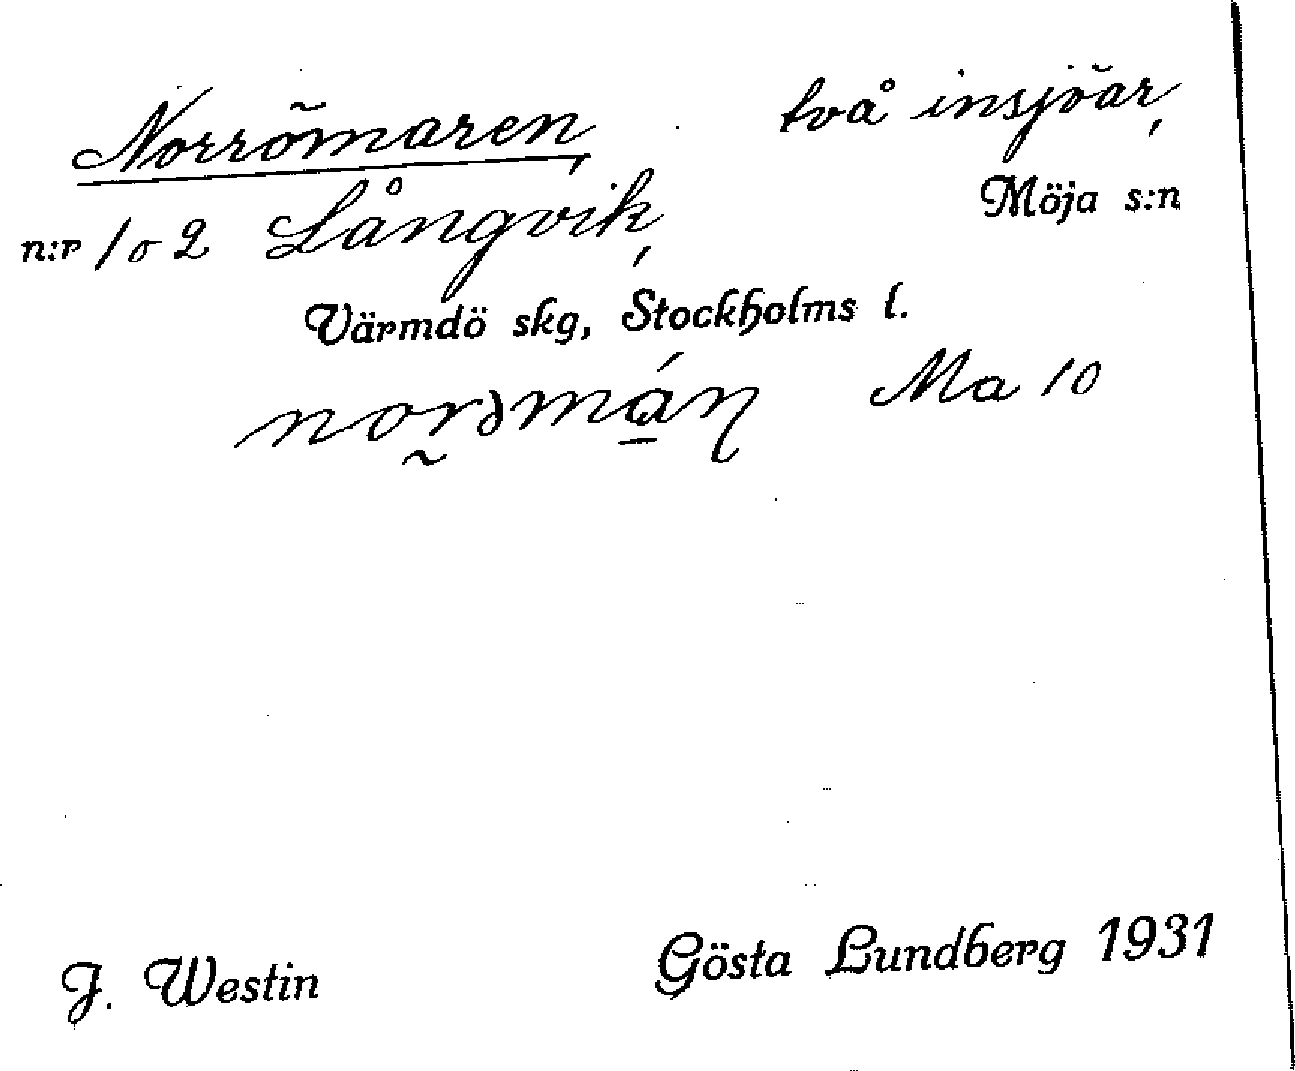 Norrömaren, två insjöar,
n:r 1 o 2 Långvik, Möja s:n
Värmdö skg, Stockholms l.
Ma 10
J. Westin Gösta Lundberg 1931